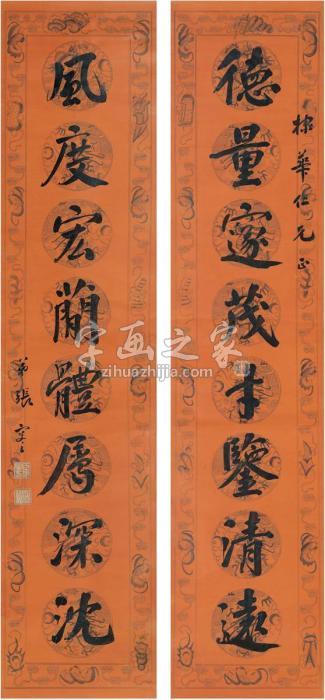 棣華仁兄正
德量邃茂才鑒清遠
風度宏簡體局深沈
弟張謇
字画之家
zihuazhijia.com
字画之家
zihuazhijia.com